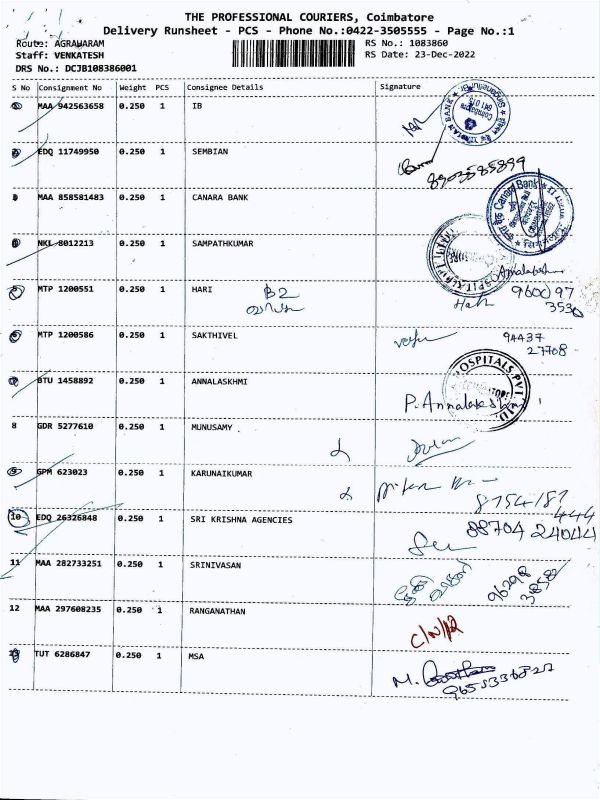 THE PROFESSIONAL COURIERS, Coimbatore
Delivery Runsheet - PCS - Phone No.:0422-3505555 - Page No.:1
Route: AGRAHARAM
RS No.: 1083860
Staff: VENKATESH
RS Date: 23-Dec-2022
DRS No.: DCJB108386001
S No Consignment No Weight PCS Consignee Details Signature
MAA 942563658 0.250 1 IB
INDIAN BANK
EDQ 11749950 0.250 1 SEMBIAN
8903585899
MAA 858581483 0.250 1 CANARA BANK
Canara Bank
NKL 8012213 0.250 1 SAMPATHKUMAR
MTP 1200551 0.250 1 HARI B2
Annalakshmi
960097
3530
MTP 1200586 0.250 1 SAKTHIVEL
94437
27708
BTU 1458892 0.250 1 ANNALASKHMI
HOSPITALS PVT LTD
P. Annalakshmi
8 GDR 5277610 0.250 1 MUNUSAMY
9 GPM 623023 0.250 1 KARUNAIKUMAR
8754187
444
10 EDQ 26326848 0.250 1 SRI KRISHNA AGENCIES
88704 24044
11 MAA 282733251 0.250 1 SRINIVASAN
12 MAA 297608235 0.250 1 RANGANATHAN
13 TUT 6286847 0.250 1 MSA
M.